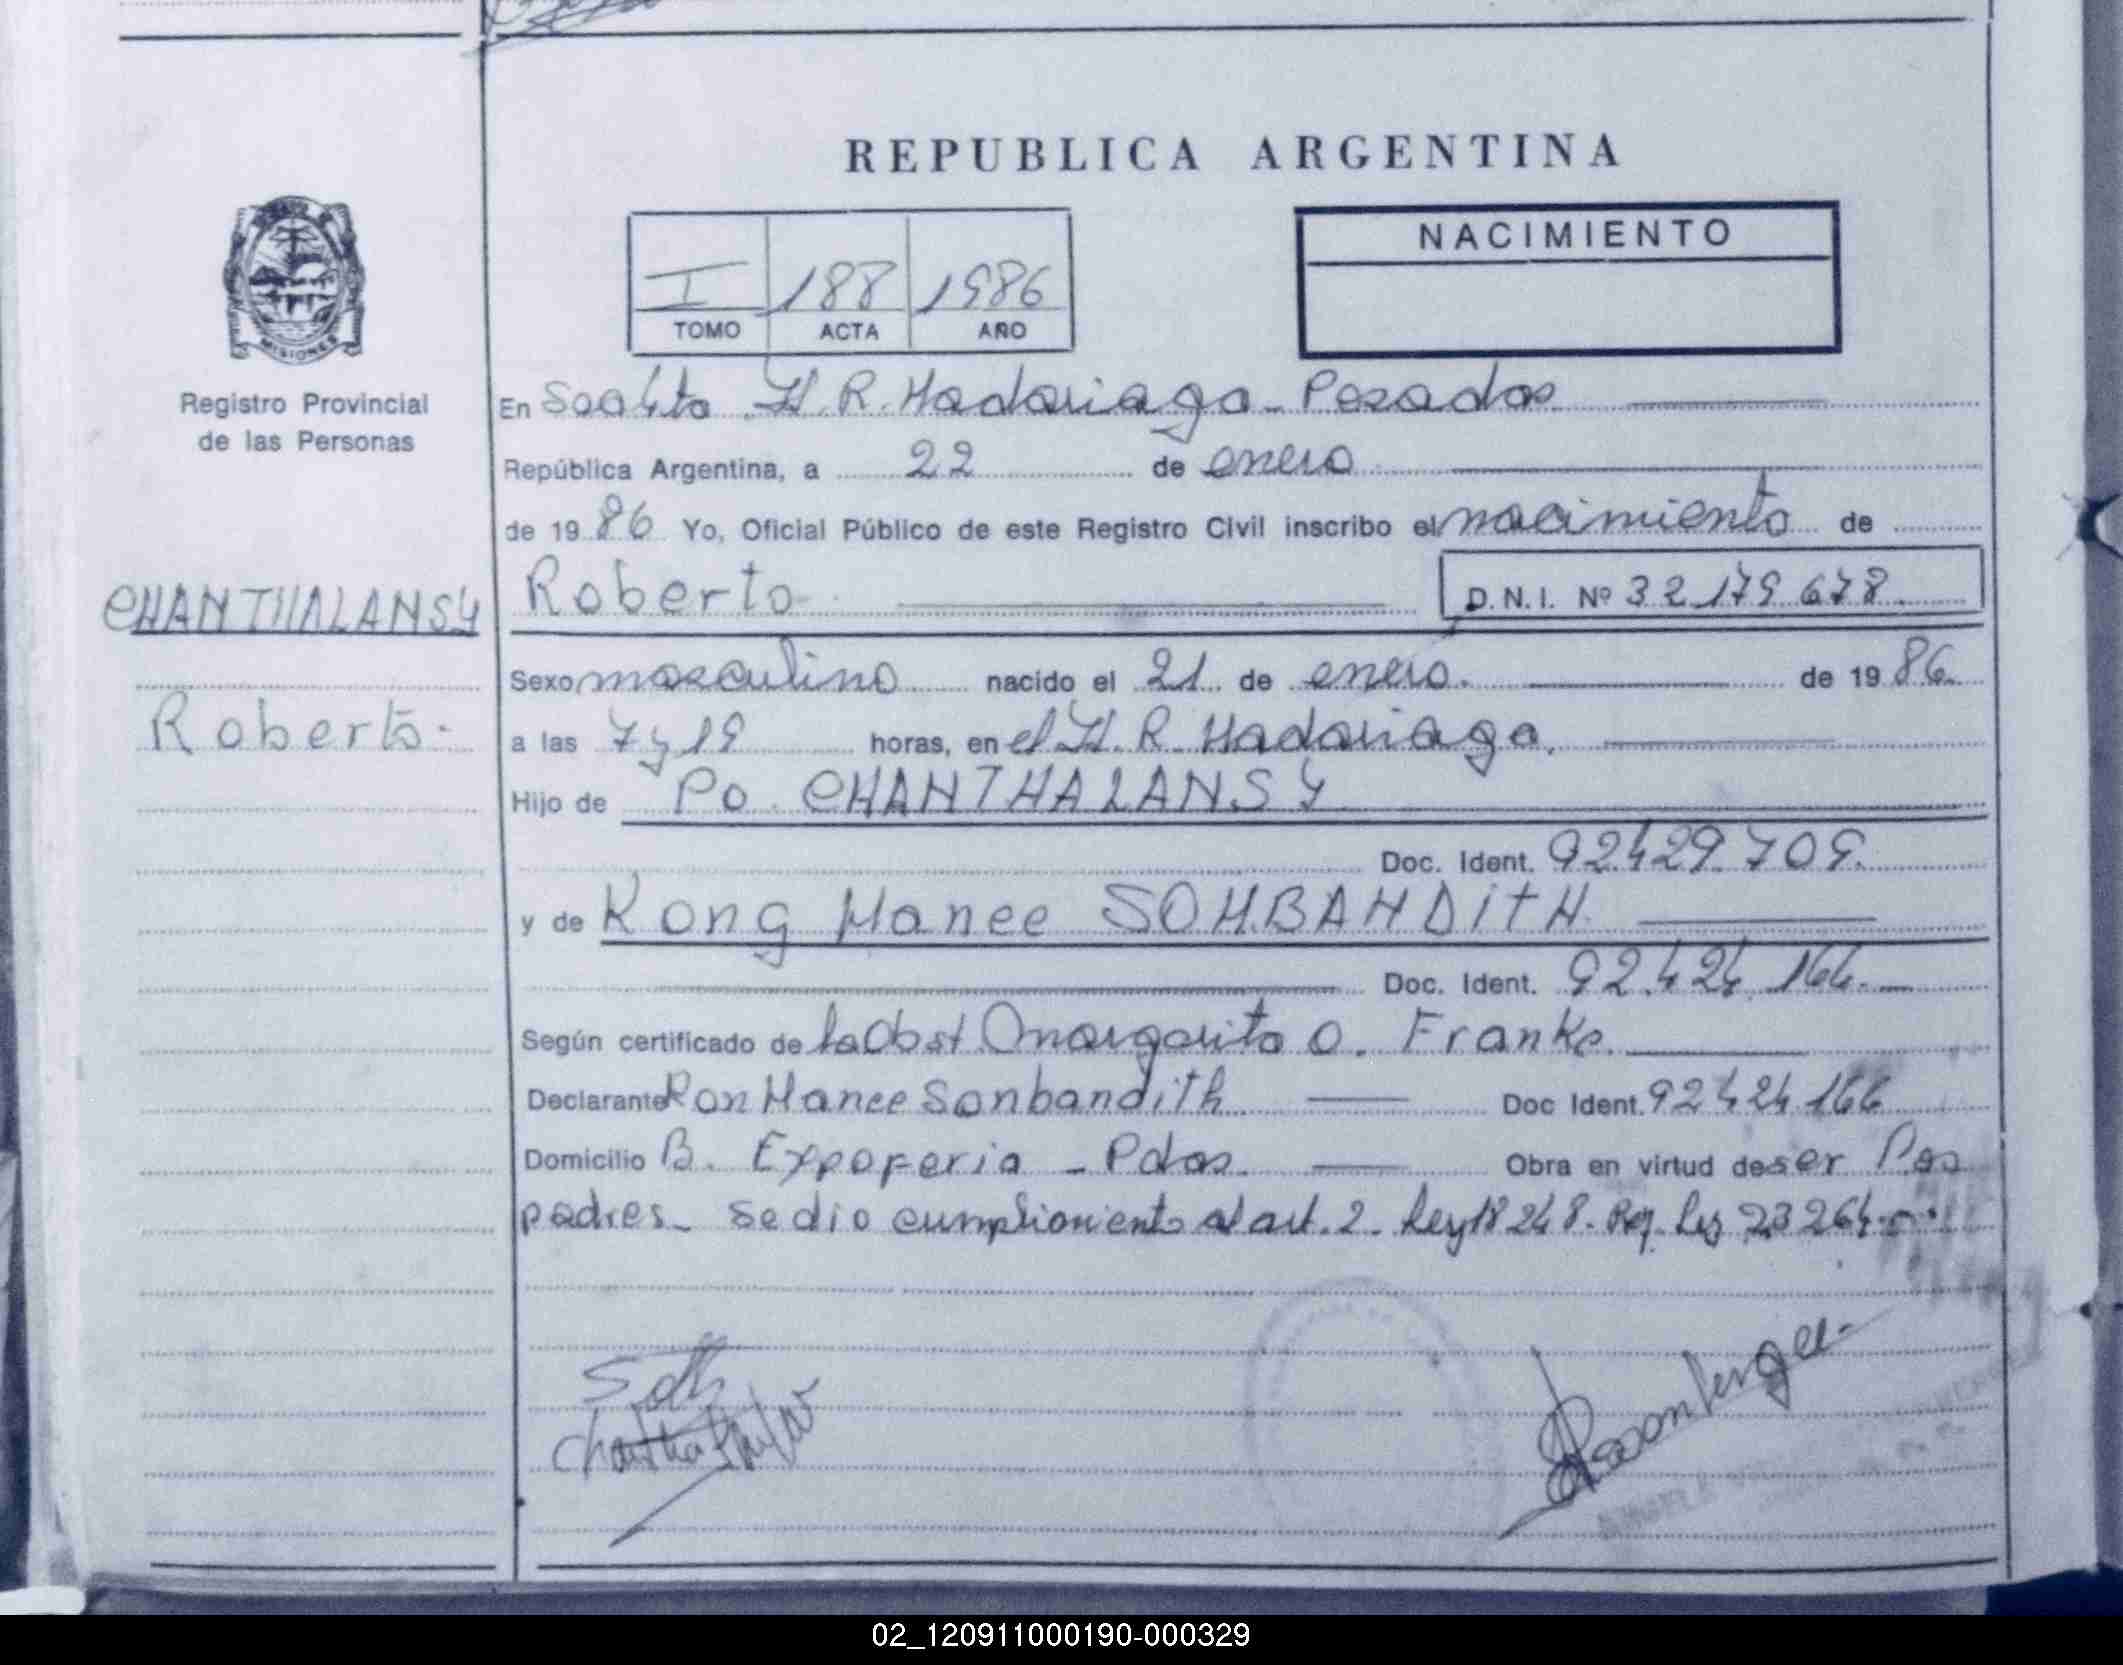 REPUBLICA ARGENTINA
NACIMIENTO
I 188 1986
TOMO ACTA AÑO
MISIONES
Registro Provincial
de las Personas
En H. R. Madariaga - Posadas
República Argentina, a 22 de enero
de 19 86 Yo, Oficial Público de este Registro Civil inscribo el nacimiento de
CHANTHALANSY
Roberto D.N.I. Nº 32 179 678
Sexo masculino nacido el 21 de enero. de 19 86.
Roberto
a las 7 y 19 horas, en el H. R. Madariaga.
Hijo de Po CHANTHALANSY
Doc. Ident. 92.429.709.
y de Kong Manee SOMBANDITH
Doc. Ident. 92.424.166.
Según certificado de la Obst. Margarita O. Franke.
Declarante Kon Manee Sonbandith Doc Ident. 92 424 166
Domicilio B. Expoferia - Pdas. Obra en virtud de ser los
padres - Se dio cumplimiento al art. 2 - Ley 18 248 - Ley 23 264
02_120911000190-000329